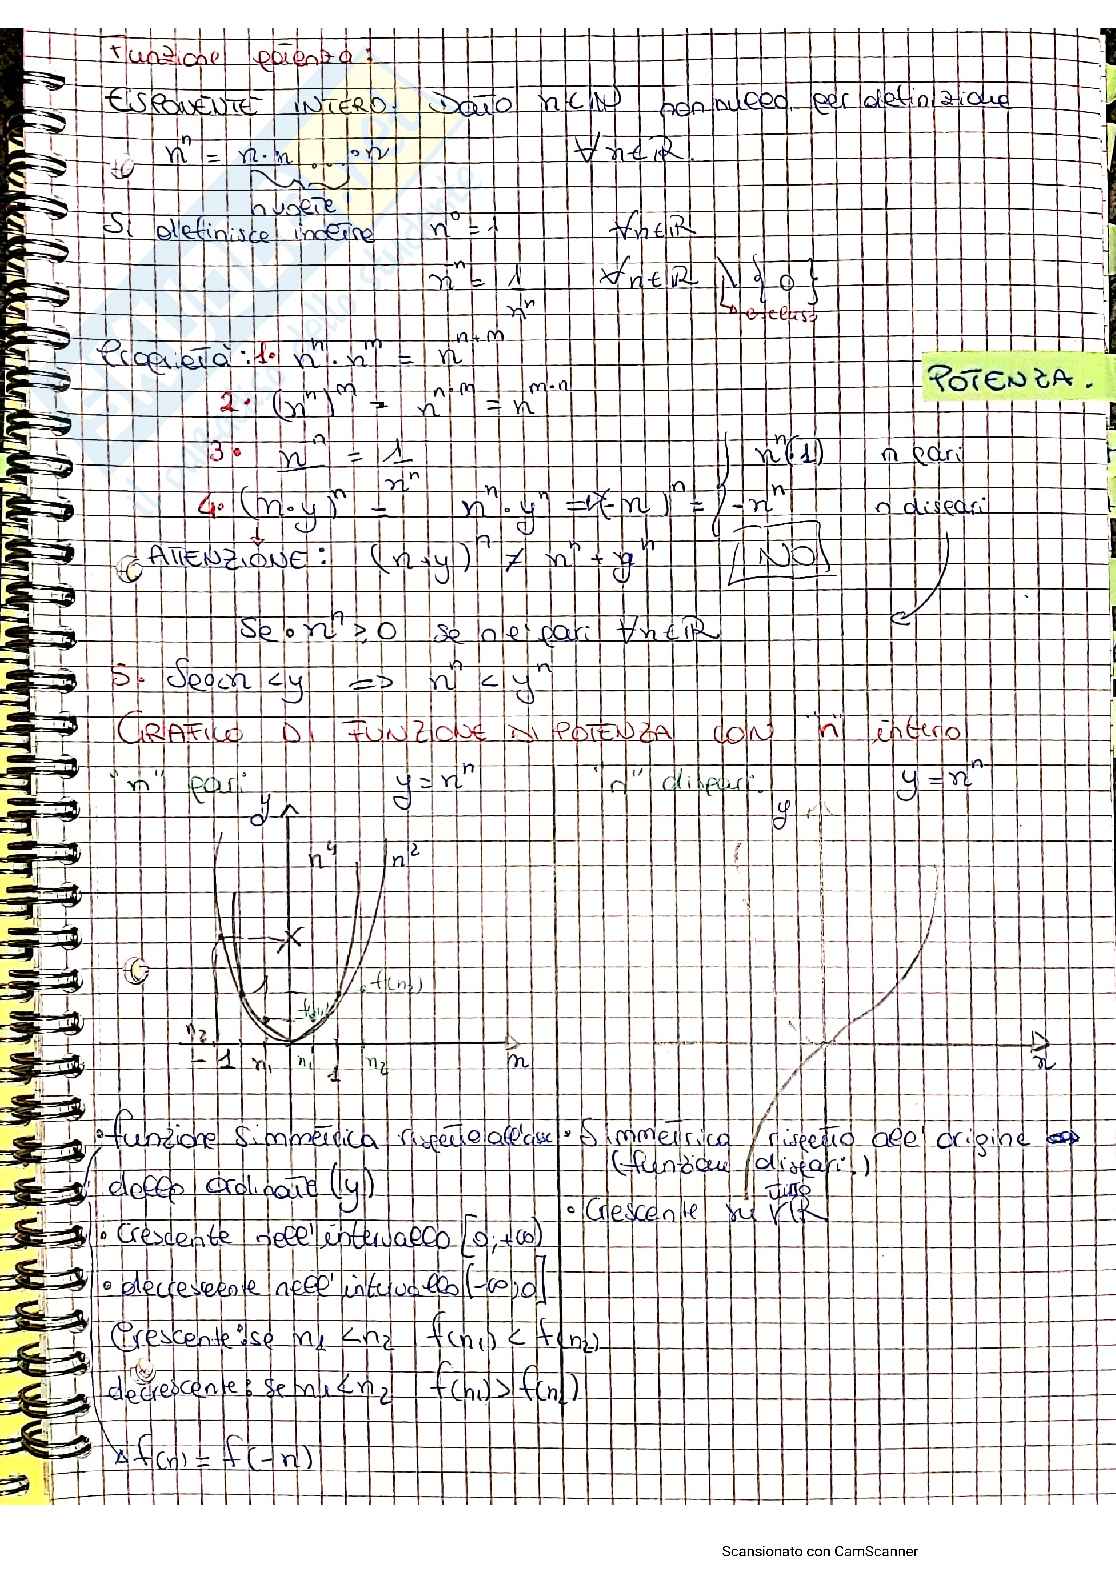 Funzione potenza:
ESPONENTE INTERO. Dato n∈N per definizione
n^n = n·n ... ·n ∀n∈R
n volte
Si definisce inoltre n^0 = 1 ∀n∈R
n^-n = 1/n^n ∀n∈R \ {0}
escluso
Proprietà: 1. n^n · n^m = n^(n+m)
POTENZA.
2. (n^n)^m = n^(n·m) = n^(m·n)
3. n^-n = 1/n^n
n^n(1) n pari
4. (n·y)^n = n^n · y^n = (-n)^n = { -n^n n dispari
ATTENZIONE: (n+y)^n ≠ n^n + y^n NO
Se n^n ≥ 0 se n è pari ∀n∈R
5. Se 0<n<y => n^n < y^n
GRAFICO DI FUNZIONE DI POTENZA CON "n" intero
"n" pari y = n^n "n" dispari. y = n^n
y
y
n^4 n^2
1
f(n2)
n2
-1 n1 n1 1 n2 n
n
• funzione simmetrica rispetto all'asse
delle ordinate (y)
• Crescente nell'intervallo [0;+∞)
• decrescente nell'intervallo (-∞;0]
Crescente: se n1 < n2 f(n1) < f(n2)
decrescente: se n1 < n2 f(n1) > f(n2)
f(n) = f(-n)
• Simmetrica rispetto all'origine
(funzioni dispari!)
• Crescente su tutto R
Scansionato con CamScanner